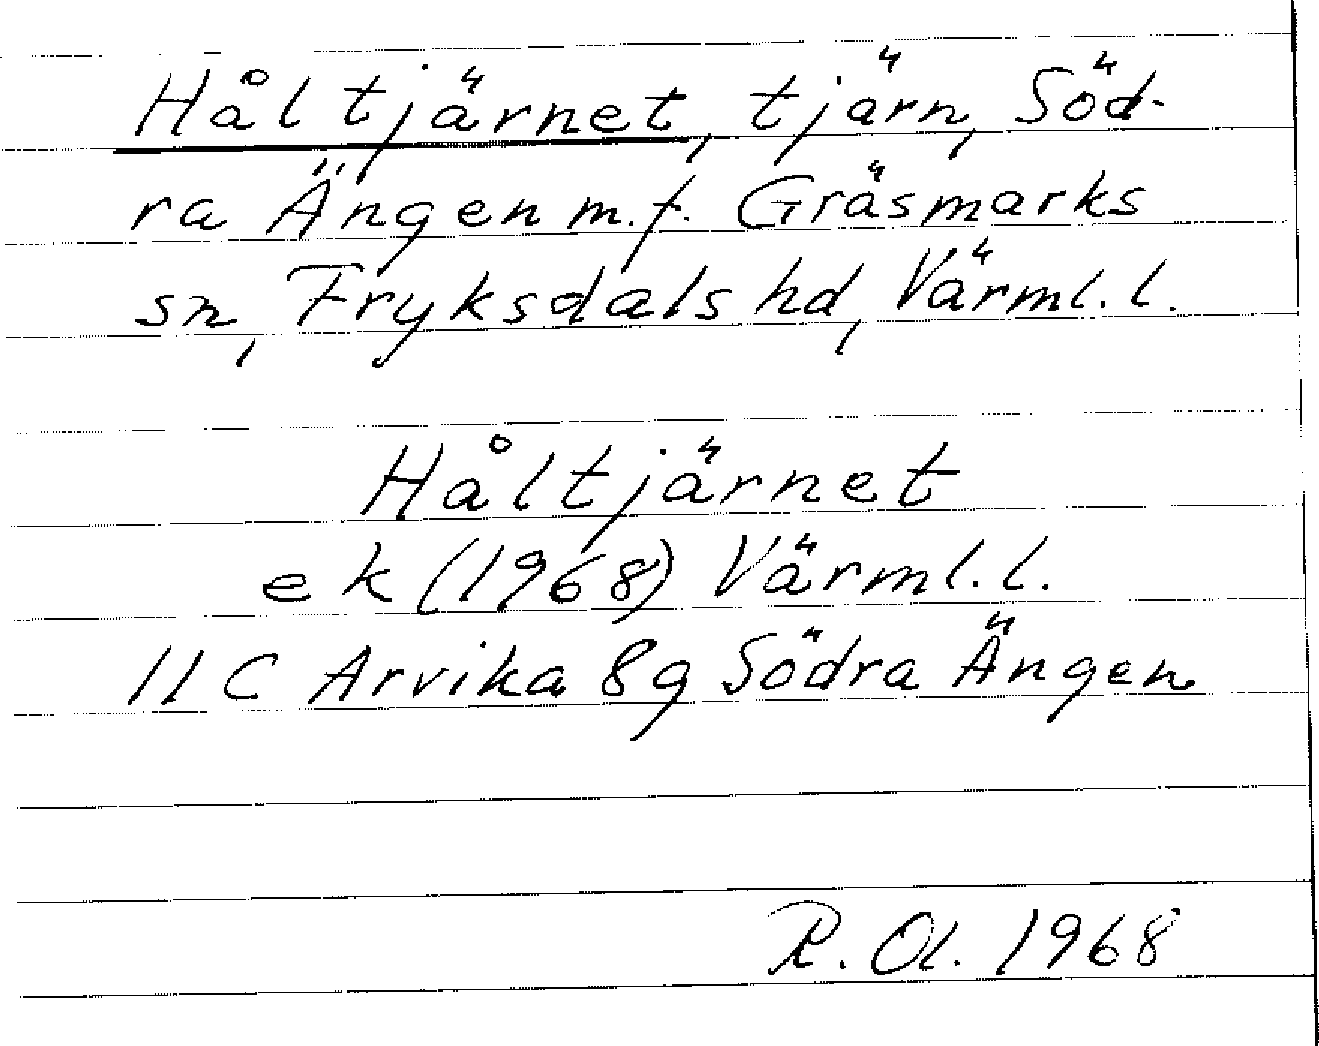 Håltjärnet, tjärn, Söd-
ra Ängen m.f. Gräsmarks
sn, Fryksdals hd, Värml.l.
Håltjärnet
ek (1968) Värml.l.
11 C Arvika 8g Södra Ängen
R. Ol. 1968